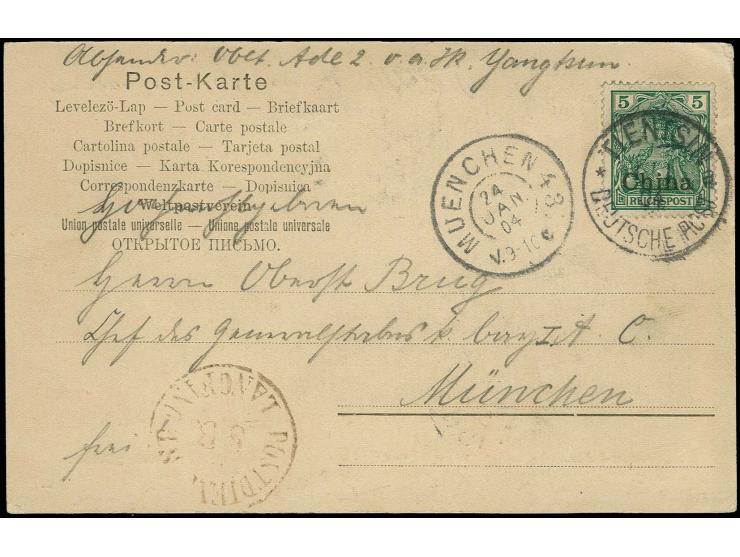 Absender: Oblt. Ade 2. o. a. Jk. Yangtsun.
Post-Karte
Levelezö-Lap — Post card — Briefkaart
Brefkort — Carte postale
Cartolina postale — Tarjeta postal
Dopisnice — Karta Korespondencyjna
Correspondenzkarte — Dopisnica
Weltpostverein
Union postale universelle — Unione postale universale
ОТКРЫТОЕ ПИСЬМО.
5 5
China
REICHSPOST
TIENTSIN
DEUTSCHE POST
MUENCHEN 43
24
JAN
04
V.9-10
Hochwohlgeboren
Herrn Oberst Brug
Chef des Generalstabes k. bay I. A. C.
München
frei
LANGFANG
POSTDIREKT